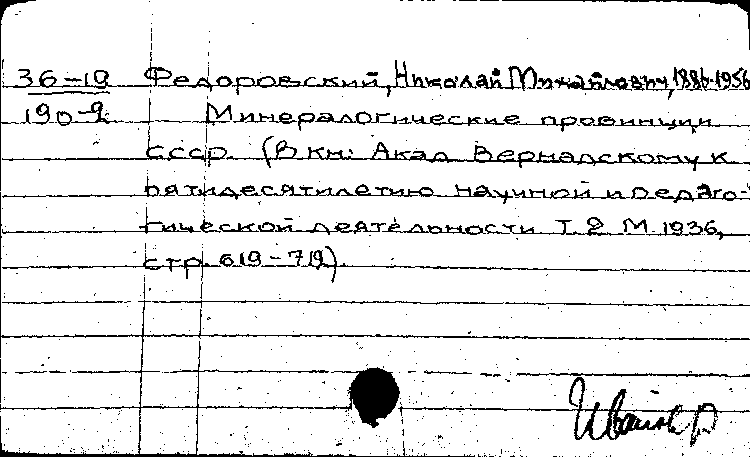 36-19 Федоровский, Николай Михайлович, 1886-1956
190-2 Минералогические провинции
СССР. (В кн: Акад Вернадскому к
пятидесятилетию научной и педаго-
гической деятельности Т. 2 М 1936,
стр. 619-719).